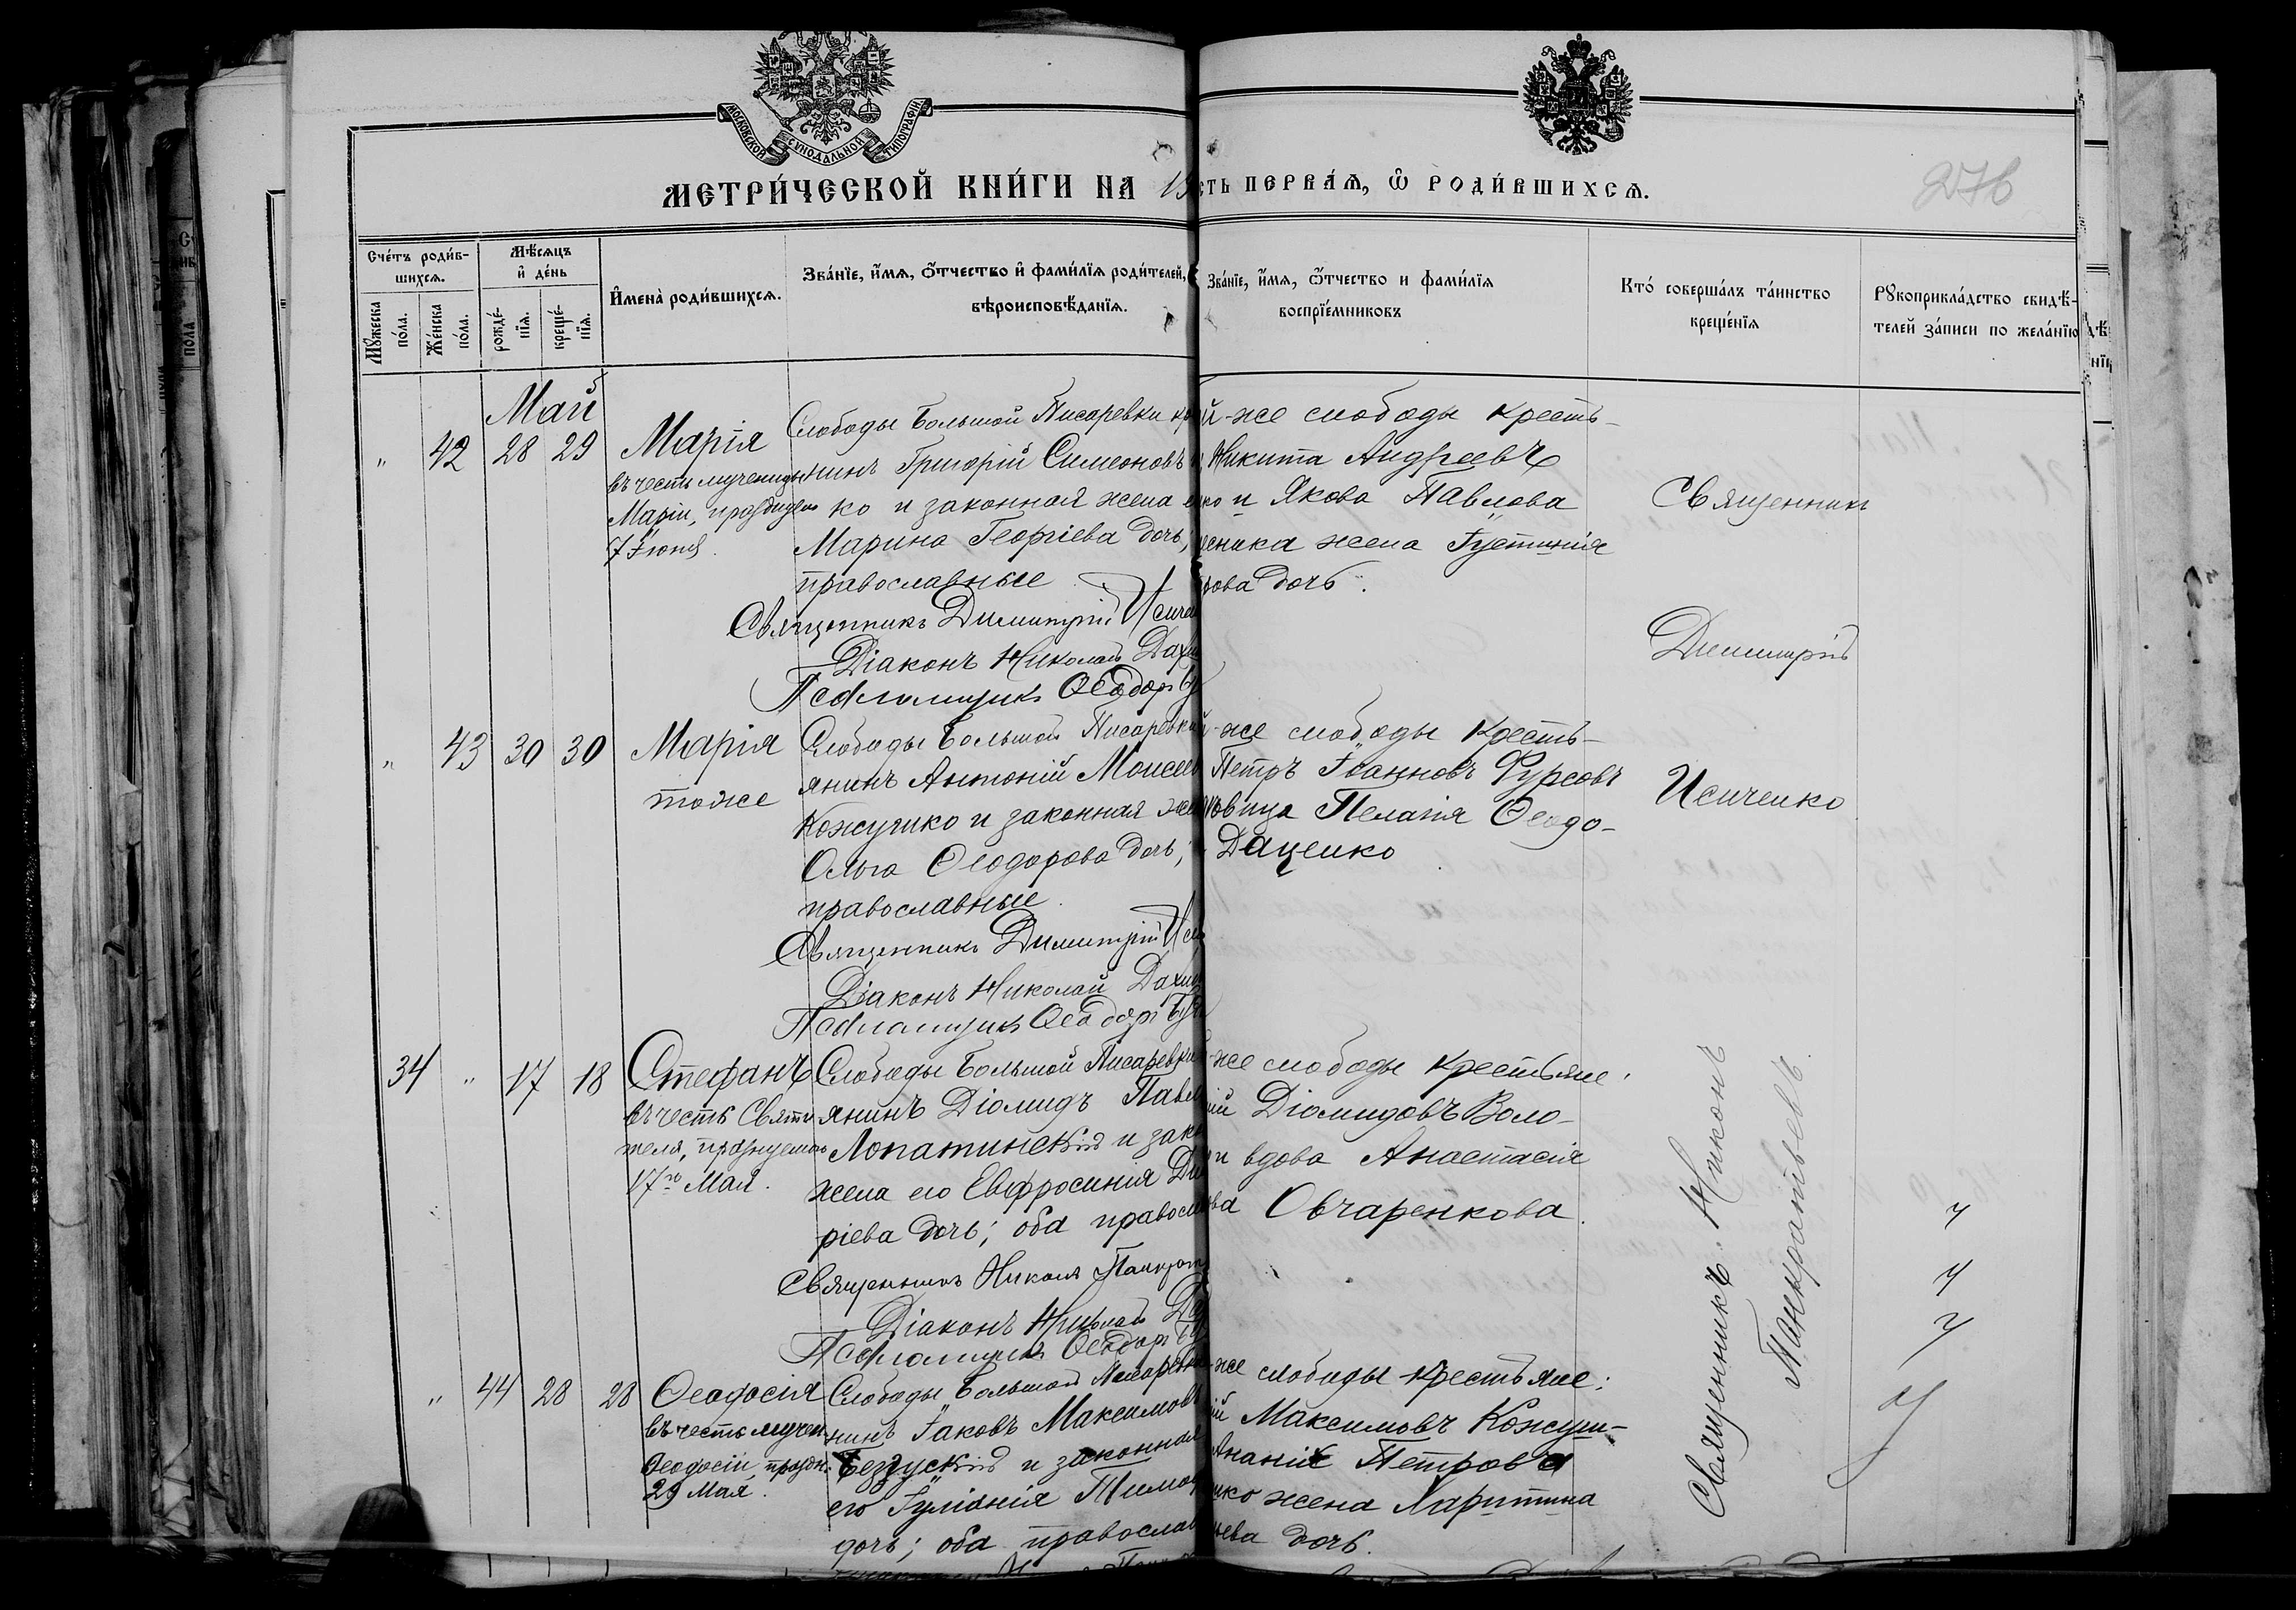 МОСКОВСКОЙ СѴНОДАЛЬНОЙ ТИПОГРАФІИ
МЕТРИ́ЧЕСКОЙ КНИ́ГИ НА
сть перва́ѧ, ѡ҆ роди́вшихсѧ.
276
Счéтъ роди́в-
шихсѧ.
Мꙋ́жеска по́ла.
Же́нска по́ла.
Мѣ́сѧцъ и҆ де́нь
рожде́-нїѧ.
креще́-нїѧ.
И҆мена̀ роди́вшихсѧ.
Зва́нїе, и҆́мѧ, ѻ҆́тчество и҆ фами́лїѧ роди́телей,
вѣроисповѣ́данїѧ.
Зва́нїе, и҆́мѧ, ѻ҆́тчество и фами́лїѧ
воспрїе́мниковъ
Кто́ соверша́лъ та́инство
креще́нїѧ
Рꙋкоприкла́дство свидѣ́-
телей за́писи по жела́нїю
Май
" 42 28 29
Марія
въ честь мученицы
Маріи, празднуем.
7 Іюня.
Слободы Большой Писаревки
нинъ Григорій Симеоновъ
ко и законная жена
Марина Георгіева дочь;
православные
Священникъ Димитрій Исиче
Діаконъ Николай Дах
Псаломщикъ Ѳеодоръ
й-же слободы кресть-
Никита Андреевъ
ко и Якова Павлова
сника жена Іустинія
рова дочь.
Священник
Димитрій
Исиченко
" 43 30 30
Марія
тоже
Слободы Большой Писаревки
янинъ Антоній Моисеев
Кожушко и законная жен
Ольга Ѳеодорова дочь;
православные.
Священникъ Димитрій Ис
Діаконъ Николай Дахн
Псаломщикъ Ѳеодоръ
-же слободы кресть-
Петръ Іоанновъ Фурсовъ
вица Пелагія Ѳеодо-
Даценко
34 " 17 18
Стефанъ
въ честь Святи
теля, празнуемаго
17го Мая.
Слободы Большой Писаревки
янинъ Діомидъ Павл
Лопатинскій и зако
жена его Евфросинія Ди
ріева дочь; оба правосл
Священникъ Никонъ Панкрат
Діаконъ Николай Да
Псаломщикъ Ѳеодоръ
-же слободы крестьяне:
ій Діомидовъ Воло-
и вдова Анастасія
ва Овчаренкова.
Священникъ Никонъ
Панкратьевъ.
" 44 28 28
Ѳеодосія
въ честь мучен.
Ѳеодосіи, праздн.
29 Мая.
Слободы Большой Писаревки
нинъ Іаковъ Максимовъ
Безрускій и законная
его Іуліанія Тимо
дочь; оба православ
-же слободы крестьяне:
ій Максимовъ Кожуш-
Ананія Петрова
ко жена Харитина
ьева дочь.